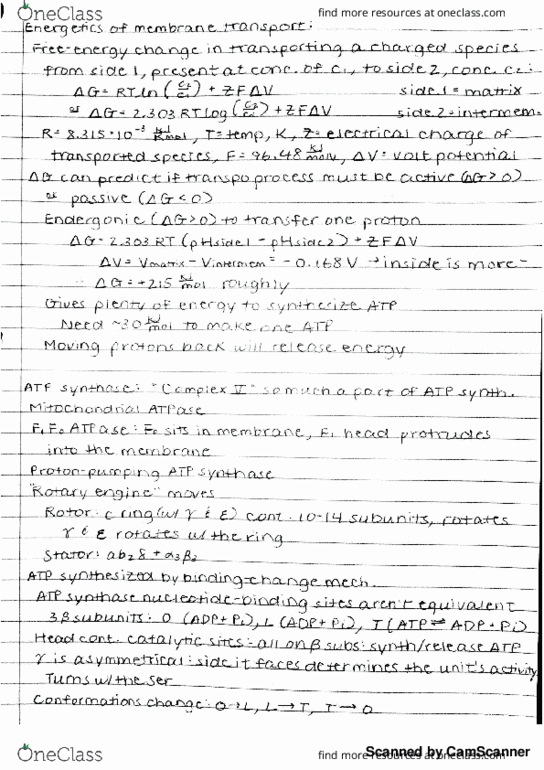 OneClass find more resources at oneclass.com
Energetics of membrane transport:
Free-energy change in transporting a charged species
from side 1, present at conc. of c₁, to side 2, conc. c₂:
ΔG = RT ln (C₂/C₁) + ZFΔV side 1 = matrix
or ΔG = 2.303 RT log (C₂/C₁) + ZFΔV side 2 = intermem.
R = 8.315·10⁻³ kJ/Kmol, T = temp, K, Z = electrical charge of
transported species, F = 96.48 kJ/molV, ΔV = volt potential
ΔG can predict if transpo process must be active (ΔG > 0)
or passive (ΔG < 0)
Endergonic (ΔG > 0) to transfer one proton
ΔG = 2.303 RT (pHside1 - pHside2) + ZFΔV
ΔV = Vmatrix - Vintermem = -0.168 V → inside is more -
ΔG = +21.5 kJ/mol roughly
Gives plenty of energy to synthesize ATP
Need ~30 kJ/mol to make one ATP
Moving protons back will release energy
ATP synthase: "Complex V" so much a part of ATP synth.
Mitochondrial ATPase
F₁F₀ ATPase: F₀ sits in membrane, F₁ head protrudes
into the membrane
Proton-pumping ATP synthase
"Rotary engine" moves
Rotor: c ring (w/ γ & ε) cont. 10-14 subunits, rotates
γ & ε rotates w/ the ring
Stator: ab₂δ + α₃β₂
ATP synthesized by binding-change mech.
ATP synthase nucleotide-binding sites aren't equivalent
3 β subunits: O (ADP + Pi), L (ADP + Pi), T (ATP ⇌ ADP + Pi)
Head cont. catalytic sites: all on β subs: synth/release ATP
γ is asymmetrical: side it faces determines the unit's activity
Turns w/ the
Conformations change: O → L, L → T, T → O
OneClass find more resources at oneclass.com
Scanned by CamScanner